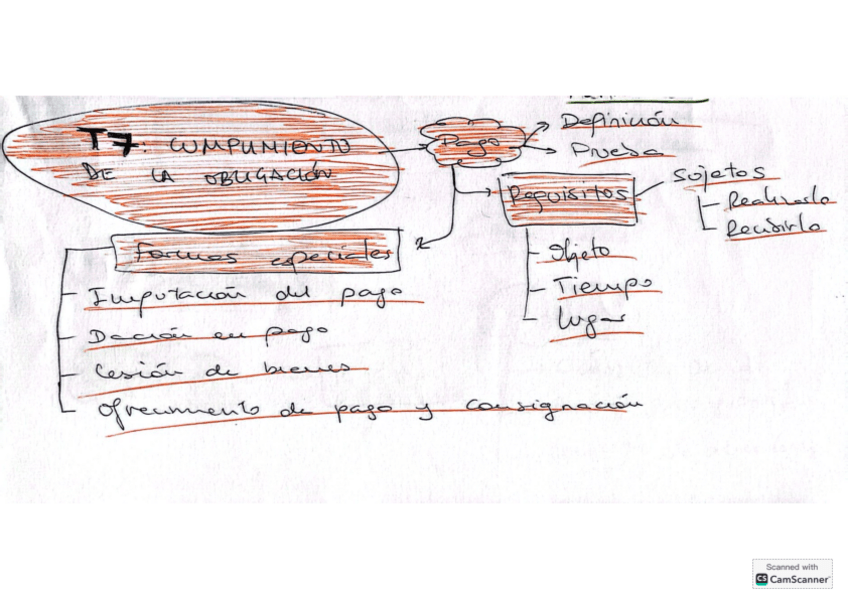 T7: CUMPLIMIENTO
DE LA OBLIGACIÓN
Pago
Definición
Prueba
Requisitos
Sujetos
Realizarlo
Recibirlo
Objeto
Tiempo
Lugar
Formas especiales
Imputación del pago
Dación en pago
Cesión de bienes
Ofrecimiento de pago y consignación
Scanned with
CS CamScanner